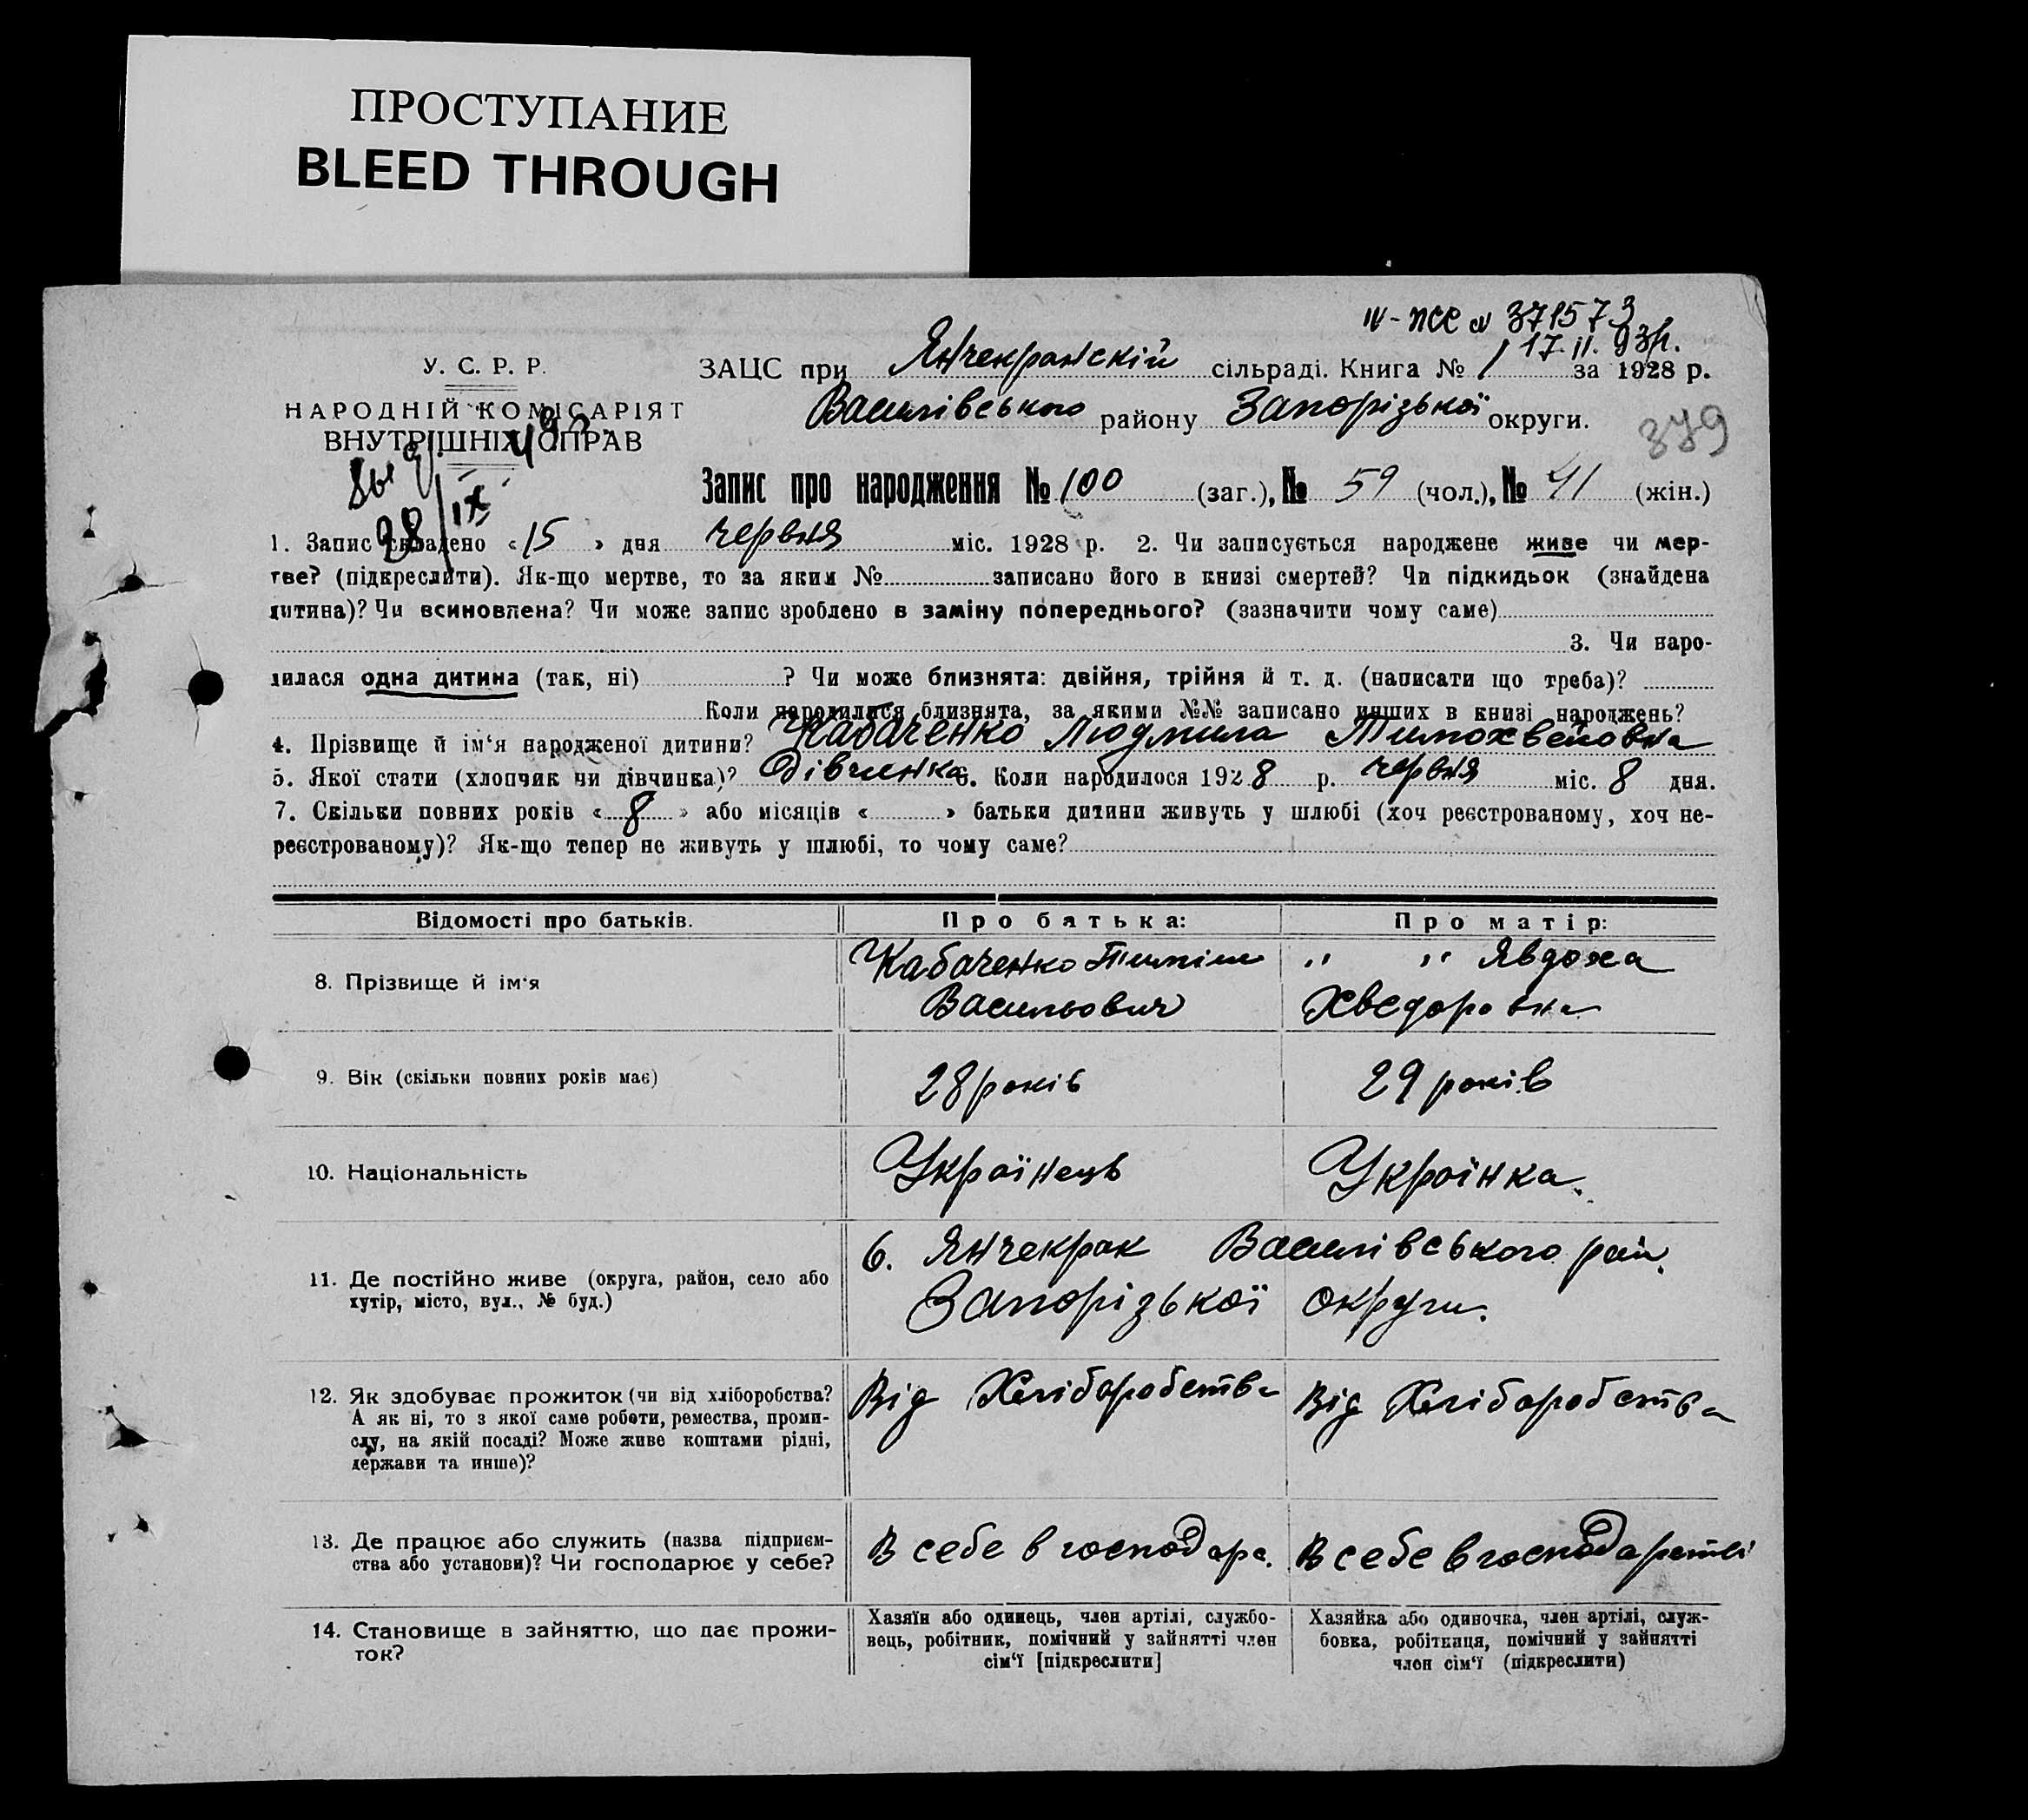 ПРОСТУПАНИЕ
BLEED THROUGH
IV-ПСС № 371573
17.II.93р.
У. С. Р. Р.
НАРОДНІЙ КОМІСАРІЯТ
ВНУТРІШНІХ СПРАВ
28/IX
ЗАЦС при Янчекранскій сільраді. Книга № 1 за 1928 р.
Василівського району Запорізької округи.
379
Запис про народження № 100 (заг.), № 59 (чол.), № 41 (жін.)
1. Запис складено «15» дня червня міс. 1928 р. 2. Чи записується народжене живе чи мер-
тве? (підкреслити). Як-що мертве, то за яким № записано його в книзі смертей? Чи підкидьок (знайдена
дитина)? Чи всиновлена? Чи може запис зроблено в заміну попереднього? (зазначити чому саме)
3. Чи наро-
дилася одна дитина (так, ні) ? Чи може близнята: двійня, трійня й т. д. (написати що треба)?
Коли народилися близнята, за якими №№ записано инших в книзі народжень?
4. Прізвище й ім‘я народженої дитини? Кабаченко Людмила Тимохвейовна
5. Якої стати (хлопчик чи дівчинка)? Дівчинка 6. Коли народилося 1928 р. червня міс. 8 дня.
7. Скільки повних років «8» або місяців « » батьки дитини живуть у шлюбі (хоч реєстрованому, хоч не-
реєстрованому)? Як-що тепер не живуть у шлюбі, то чому саме?
Відомості про батьків. Про батька: Про матір:
8. Прізвище й ім‘я
Кабаченко Тимпіш
Васильович
" " Явдоха
Хведоровна
9. Вік (скільки повних років має) 28 років 29 років
10. Національність Українець Українка.
11. Де постійно живе (округа, район, село або
хутір, місто, вул., № буд.)
с. Янчекрак Василівського рай.
Запорізької округи.
12. Як здобуває прожиток (чи від хліборобства?
А як ні, то з якої саме роботи, ремества, проми-
слу, на якій посаді? Може живе коштами рідні,
держави та инше)?
Від Хліборобства
Від Хліборобства
13. Де працює або служить (назва підприєм-
ства або установи)? Чи господарює у себе?
В себе в господарс.
В себе в господарстві
14. Становище в зайняттю, що дає прожи-
ток?
Хазяїн або одинець, член артілі, службо-
вець, робітник, помічний у зайнятті член
сім‘ї [підкреслити]
Хазяйка або одиночка, член артілі, служ-
бовка, робітниця, помічний у зайнятті
член сім‘ї (підкреслити)